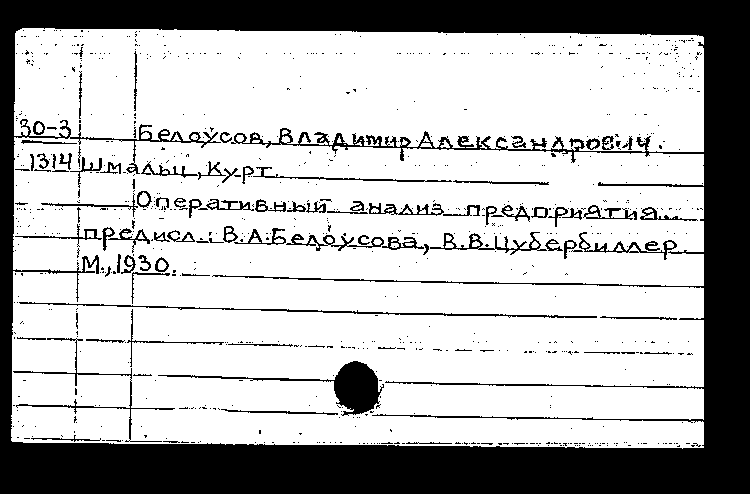 30-3 Белоусов, Владимир Александрович.
1314 Шмальц, Курт.
Оперативный анализ предприятия...
предисл.: В.А.Белоусова, В.В.Цубербиллер.
М., 1930.